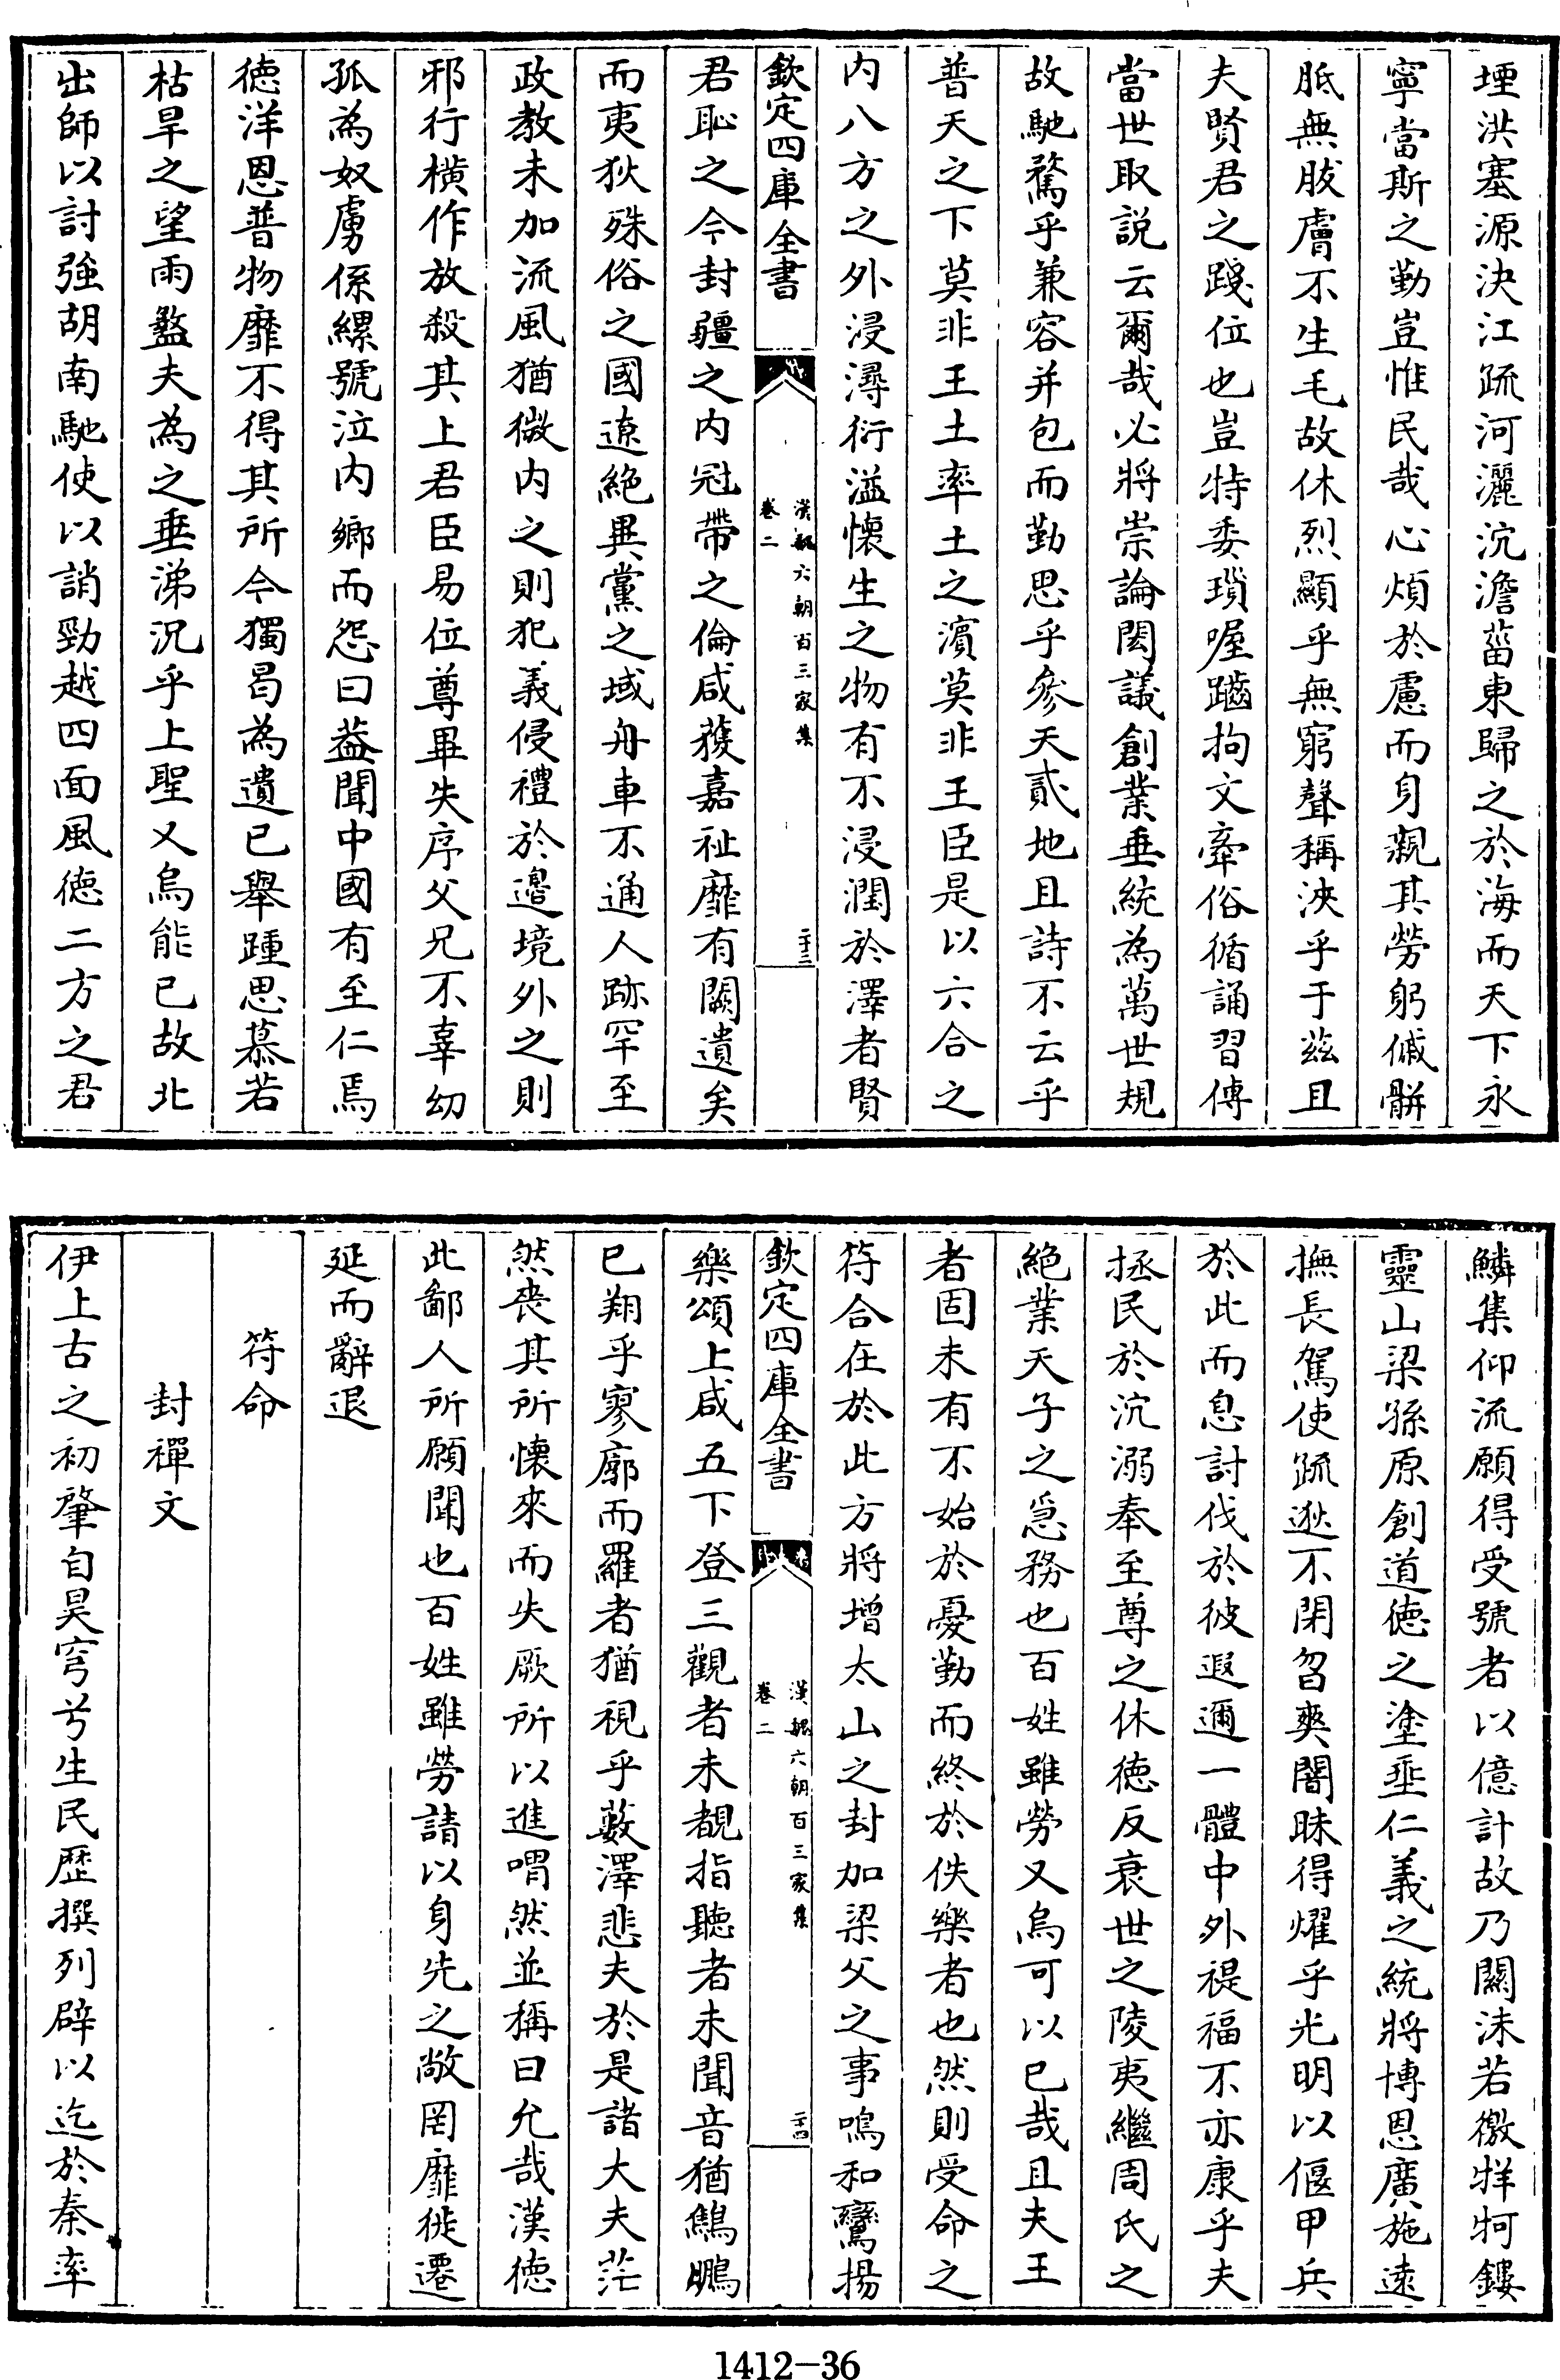 堙洪塞源決江疏河灑沉澹菑東歸之於海而天下永
寧當斯之勤豈惟民哉心煩於慮而身親其勞躬傶骿
胝無胈膚不生毛故休烈顯乎無窮聲稱浹乎于茲且
夫賢君之踐位也豈特委瑣喔躖拘文牽俗循誦習傳
當世取説云爾哉必將崇論閎議創業垂統為萬世規
故馳騖乎兼容并包而勤思乎參天貳地且詩不云乎
普天之下莫非王土率土之濱莫非王臣是以六合之
内八方之外浸潯衍溢懷生之物有不浸潤於澤者賢
欽定四庫全書
漢魏六朝百三家集
卷二
二十三
君恥之今封疆之内冠帶之倫咸獲嘉祉靡有闕遺矣
而夷狄殊俗之國遼絶異黨之域舟車不通人跡罕至
政教未加流風猶微内之則犯義侵禮於邊境外之則
邪行橫作放殺其上君臣易位尊卑失序父兄不辜幼
孤為奴虜係縲號泣内鄉而怨曰葢聞中國有至仁焉
徳洋恩普物靡不得其所今獨曷為遺已舉踵思慕若
枯旱之望雨盭夫為之垂涕况乎上聖又烏能已故北
出師以討強胡南馳使以誚勁越四面風徳二方之君
鱗集仰流願得受號者以億計故乃關沬若徼牂牁鏤
靈山梁孫原創道徳之塗垂仁義之統將博恩廣施逺
撫長駕使疏逖不閉曶爽闇昧得燿乎光明以偃甲兵
於此而息討伐於彼遐邇一體中外禔福不亦康乎夫
拯民於沉溺奉至尊之休徳反衰世之陵夷繼周氏之
絶業天子之急務也百姓雖勞又烏可以已哉且夫王
者固未有不始於憂勤而終於佚樂者也然則受命之
符合在於此方將增太山之封加梁父之事鳴和鸞揚
欽定四庫全書
漢魏六朝百三家集
卷二
二十四
樂頌上咸五下登三觀者未覩指聽者未聞音猶鷦鵬
已翔乎寥廓而羅者猶視乎藪澤悲夫於是諸大夫茫
然喪其所懷來而失厥所以進喟然並稱曰允哉漢徳
此鄙人所願聞也百姓雖勞請以身先之敞罔靡徙遷
延而辭退
符命
封禪文
伊上古之初肇自昊穹兮生民歴撰列辟以迄於秦率
1412-36